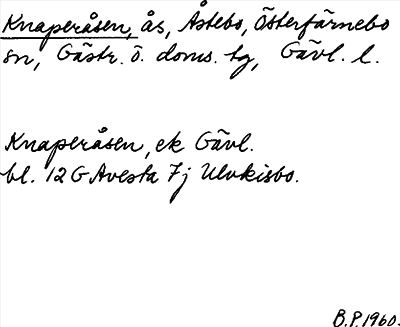 Knaperåsen, ås, Åstebo, Österfärnebo
sn, Gästr. ö. doms. tg, Gävl. l.
Knaperåsen, ek Gävl.
bl. 12 G Avesta 7j Ulvkisbo.
B.P. 1960.